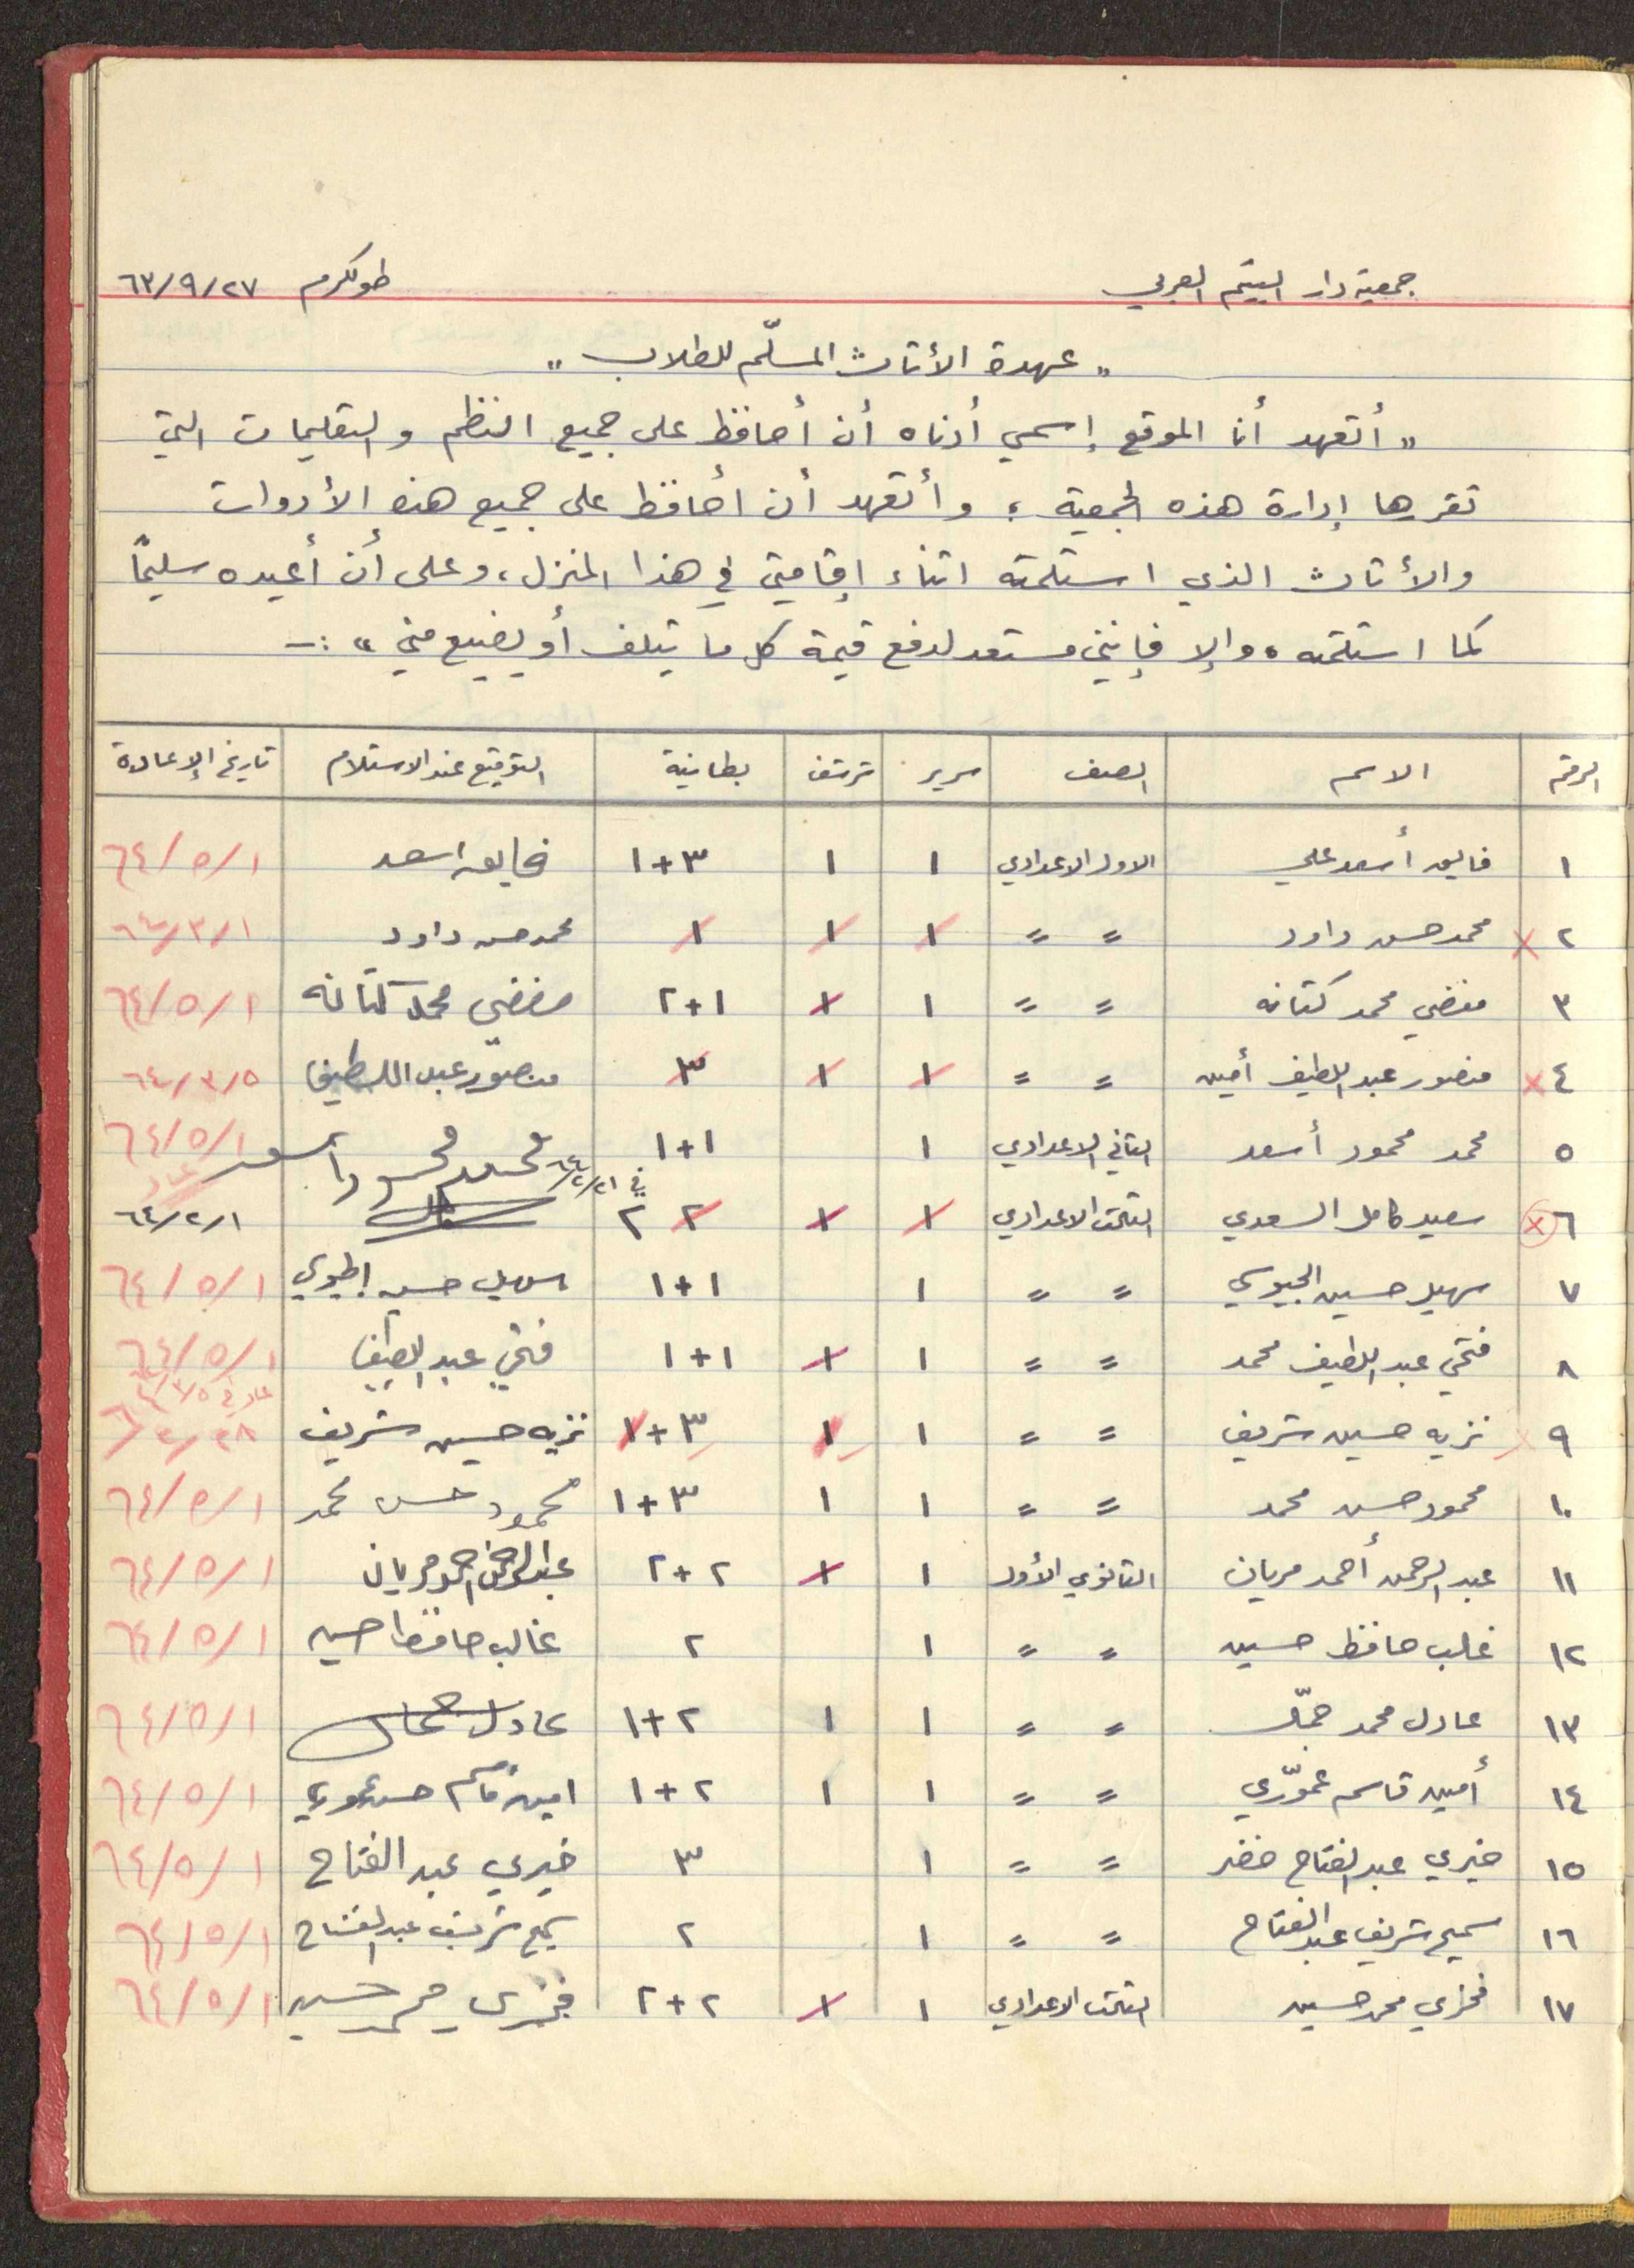 جمعية دار اليتيم العربي طولكرم ٦٣/٩/٢٧
" عهدة الأثاث المسلّم للطلاب "
" أتعهد أنا الموقع إسمي أدناه أن أحافظ على جميع النظم والتعليمات التي
تقررها إدارة هذه الجمعية ؛ وأتعهد أن أحافظ على جميع هذه الأدوات
والأثاث الذي استلمته اثناء إقامتي في هذا المنزل ، وعلى أن أعيده سليمًا
كما استلمته ، وإلا فإنني مستعد لدفع قيمة كل ما يتلف أو يضيع مني " :-
الرقم الاسم الصف سرير شرشف بطانية التوقيع عند الاستلام تاريخ الإعادة
١ فايق أسعد علي الاول الاعدادي ١ ١ ٣+١ فايق اسعد ٦٤/٥/١
٢ x محمد حسن داود = = ١ ١ ١ محمد حسن داود ٦٤/٣/١
٣ مفضي محمد كتانه = = ١ ١ ١+٢ مفضي محمد كتانه ٦٤/٥/١
٤ x منصور عبد اللطيف أمين = = ١ ١ ٣ منصور عبد اللطيف ٦٤/٣/٥
٥ محمد محمود أسعد الثاني الاعدادي ١ ١+١ محمد محمود اسعد ٦٤/٥/١
٦ x سعيد كامل السعدي الثالث الاعدادي ١ ١ ٢ ٢ في ٦٤/٢/٢١ عاد ٦٤/٢/١
٧ سهيل حسين الجيوسي = = ١ ١+١ سهيل حسين الجيوسي ٦٤/٥/١
٨ فتحي عبد اللطيف محمد = = ١ ١ ١+١ فتحي عبد اللطيف ٦٤/٥/١
٩ x نزيه حسين شريف = = ١ ١ ٣+١ نزيه حسين شريف عاد في ٣/٥
١٠ محمود حسن محمد = = ١ ١ ٣+١ محمود حسن محمد ٦٤/٥/١
١١ عبد الرحمن أحمد مريان الثانوي الأول ١ ١ ٢+٢ عبد الرحمن احمد مريان ٦٤/٥/١
١٢ غالب حافظ حسين = = ١ ٢ غالب حافظ حسين ٦٤/٥/١
١٣ عادل محمد جمّال = = ١ ١ ٢+١ عادل جمال ٦٤/٥/١
١٤ أمين قاسم عمّوري = = ١ ١ ٢+١ امين قاسم حسن عموري ٦٤/٥/١
١٥ خيري عبد الفتاح خضر = = ١ ٣ خيري عبد الفتاح ٦٤/٥/١
١٦ سميح شريف عبد الفتاح = = ١ ٢ سميح شريف عبد الفتاح ٦٤/٥/١
١٧ فخري محمد حسين الثالث الاعدادي ١ ١ ٢+٢ فخري محمد حسين ٦٤/٥/١